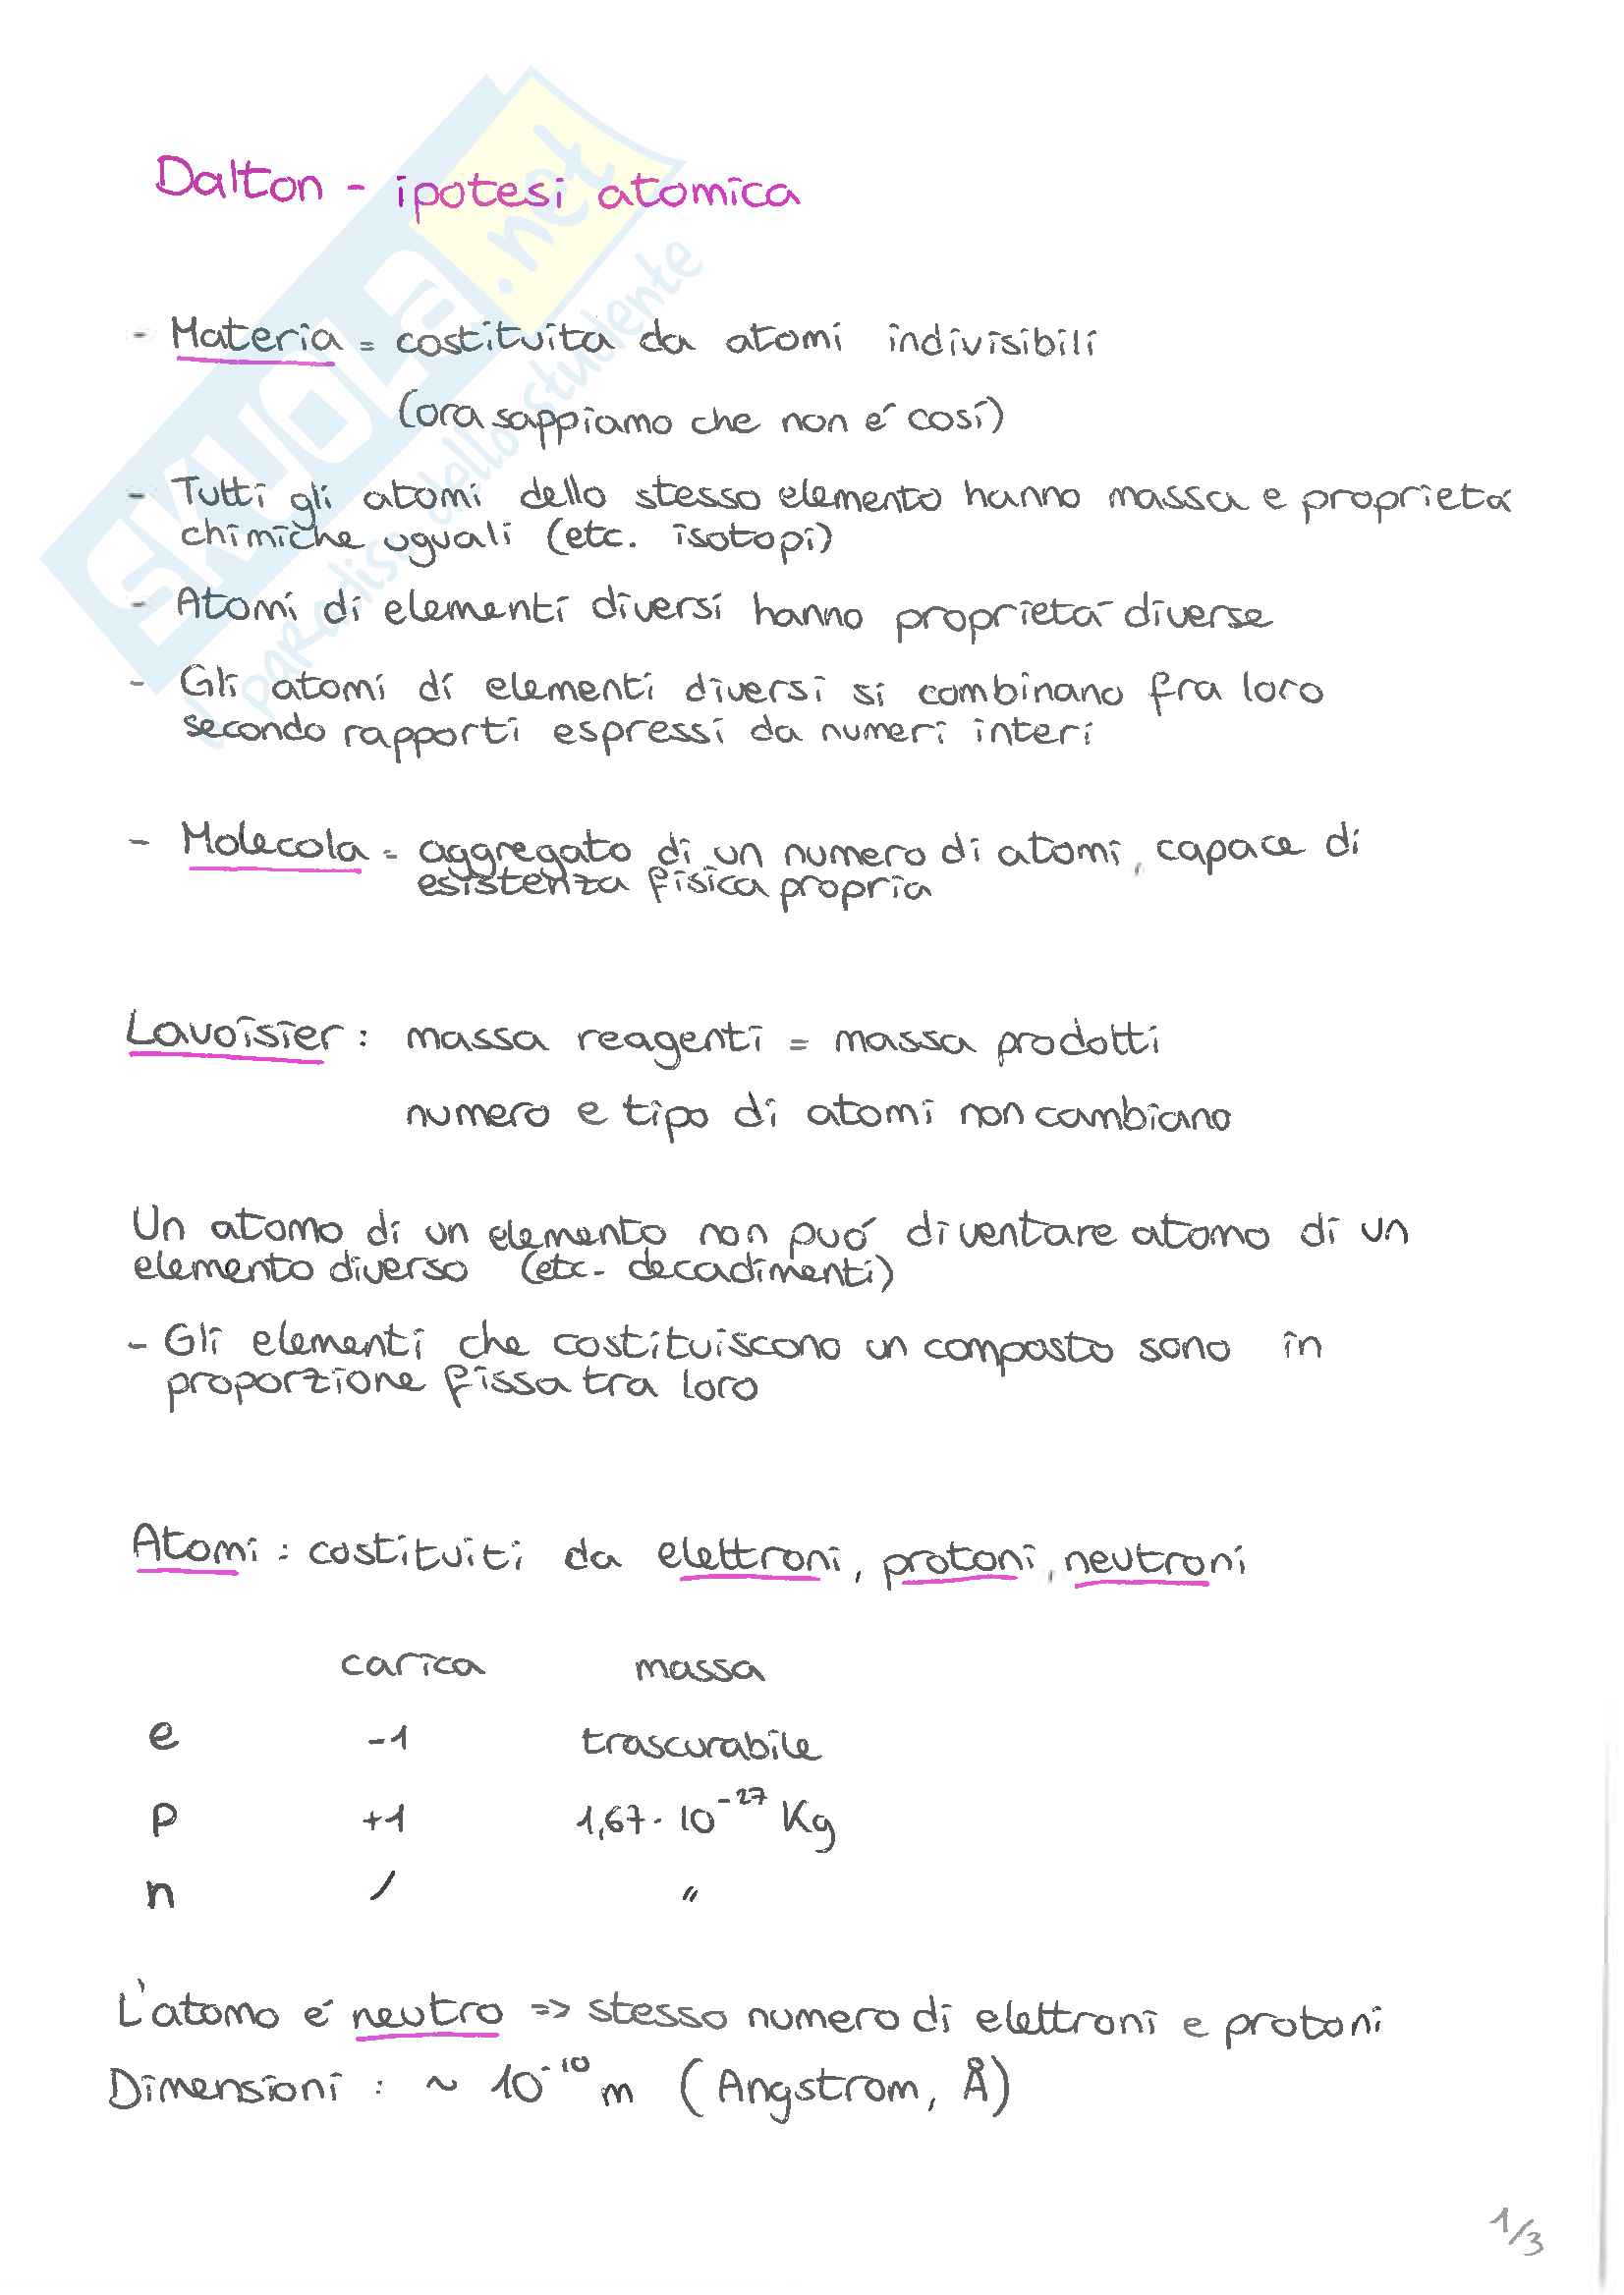 Dalton - ipotesi atomica
SKUOLa.net
il paradiso dello studente
- Materia = costituita da atomi indivisibili
(ora sappiamo che non é cosí)
- Tutti gli atomi dello stesso elemento hanno massa e proprietá
chimiche uguali (etc. isotopi)
- Atomi di elementi diversi hanno proprietá diverse
- Gli atomi di elementi diversi si combinano fra loro
secondo rapporti espressi da numeri interi
- Molecola = aggregato di un numero di atomi, capace di
esistenza fisica propria
Lavoisier : massa reagenti = massa prodotti
numero e tipo di atomi non cambiano
Un atomo di un elemento non puó diventare atomo di un
elemento diverso (etc- decadimenti)
- Gli elementi che costituiscono un composto sono in
proporzione fissa tra loro
Atomi : costituiti da elettroni, protoni, neutroni
carica massa
e -1 trascurabile
p +1 1,67 · 10⁻²⁷ Kg
n / "
L'atomo é neutro => stesso numero di elettroni e protoni
Dimensioni : ~ 10⁻¹⁰ m (Angstrom, Å)
1/3